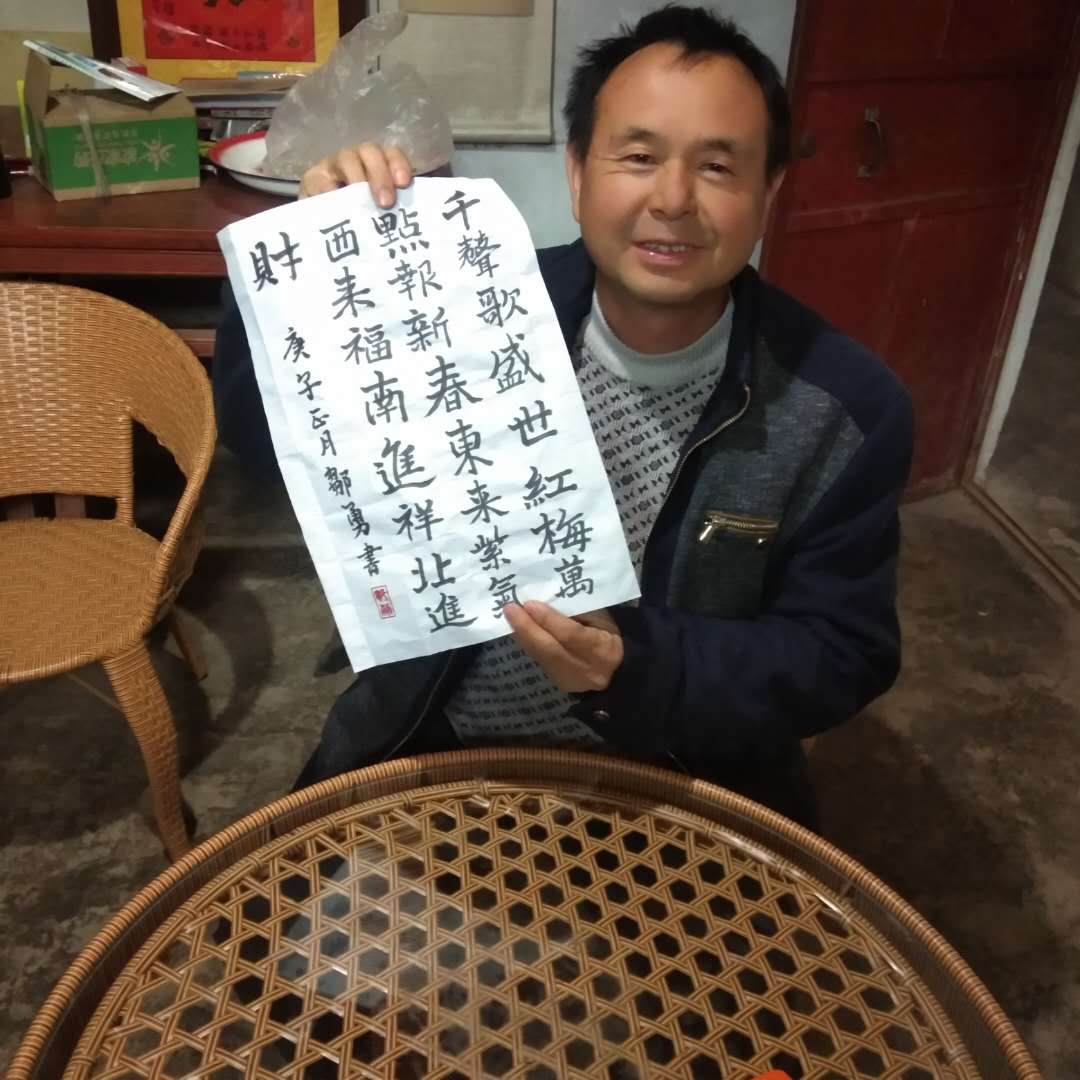 千聲歌盛世紅梅萬
點報新春東来紫氣
西来福南進祥北進
財
庚子正月鄒勇書